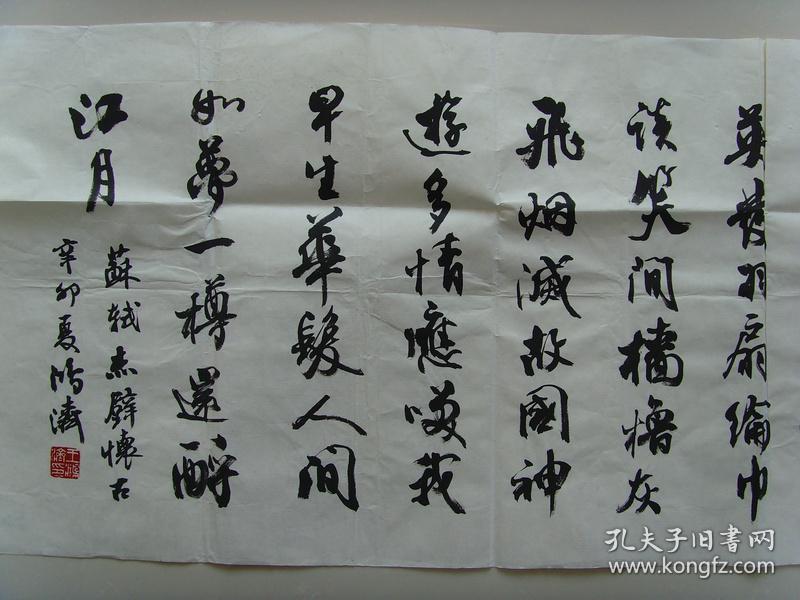 英發羽扇綸巾
談笑间檣櫓灰
飛烟滅故國神
遊多情應咲我
早生華髮人间
如夢一樽還酹
江月
蘇軾赤壁懷古
辛卯夏鴻濤
孔夫子旧書网
www.kongfz.com